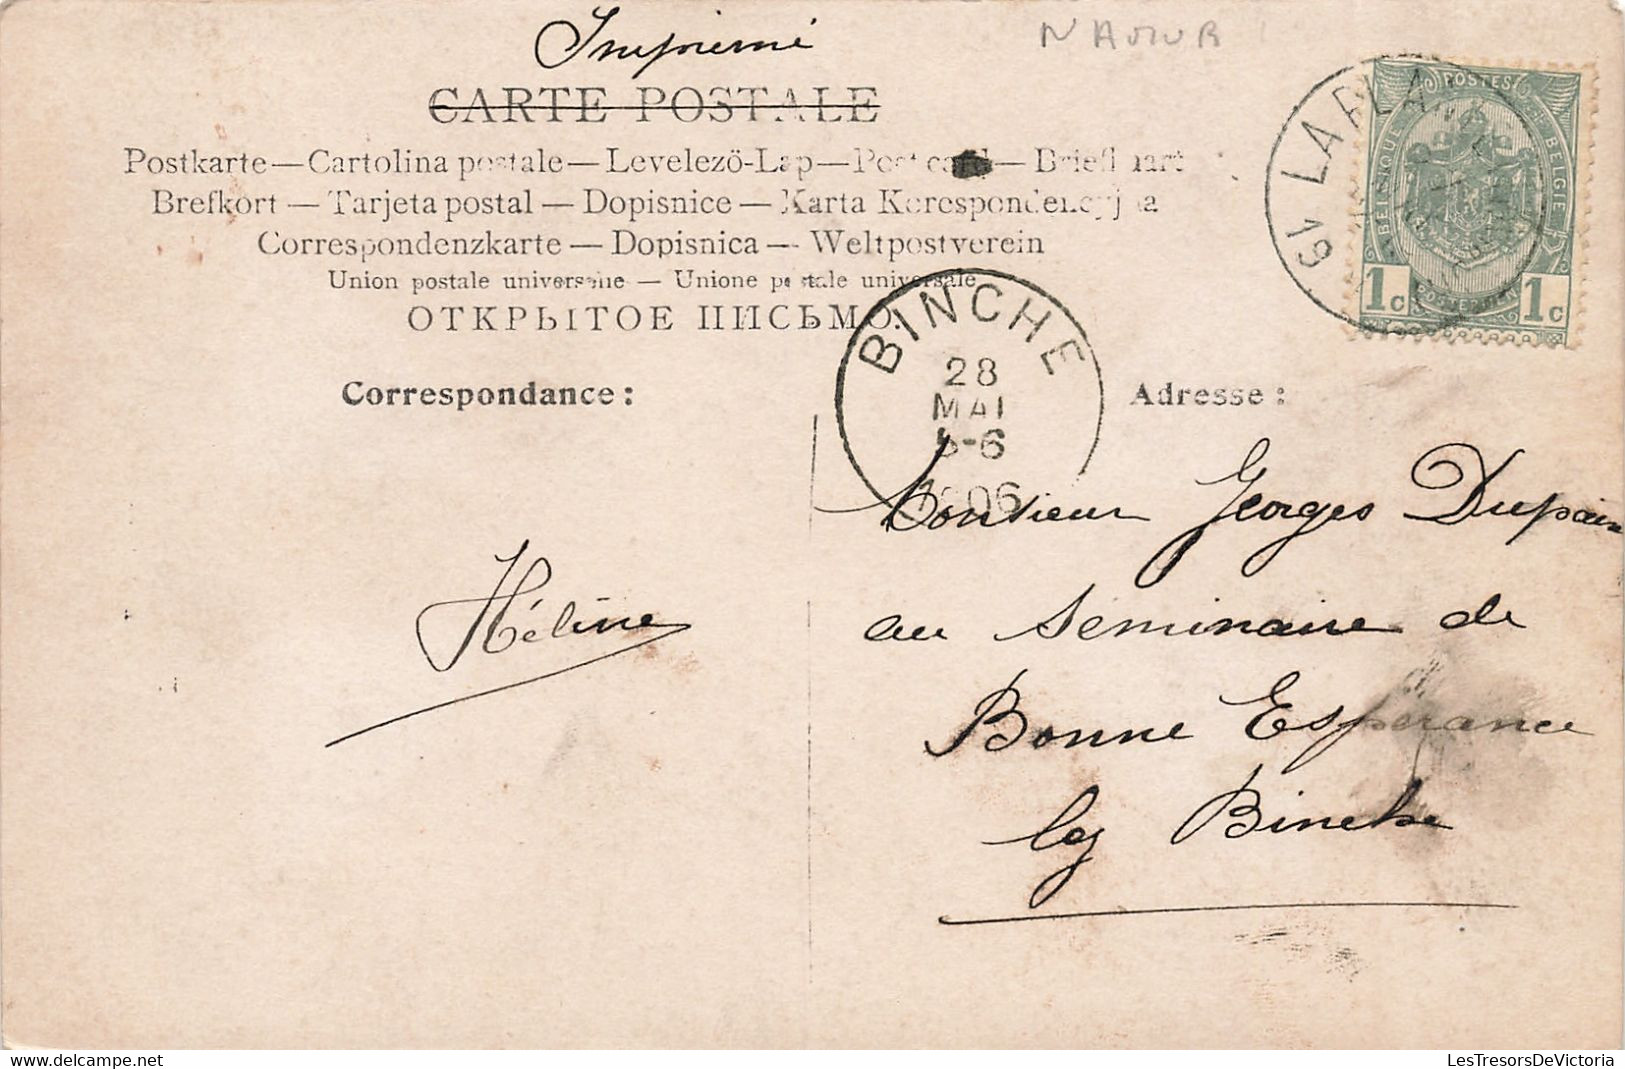 Imprimé
NAMUR
CARTE POSTALE
Postkarte — Cartolina postale — Levelezö-Lap — Post card — Briefkaart
Brefkort — Tarjeta postal — Dopisnice — Karta Korespondencyjna
Correspondenzkarte — Dopisnica — Weltpostverein
Union postale universelle — Unione postale universale
ОТКРЫТОЕ ПИСЬМО.
POSTES
BELGIQUE
BELGIË
POSTERIJEN
1c 1c
BINCHE
28
MAI
5-6
1906
Correspondance :
Adresse :
Hélène
Monsieur Georges Dupain
au Séminaire de
Bonne Espérance
lez Binche
LesTresorsDeVictoria
www.delcampe.net